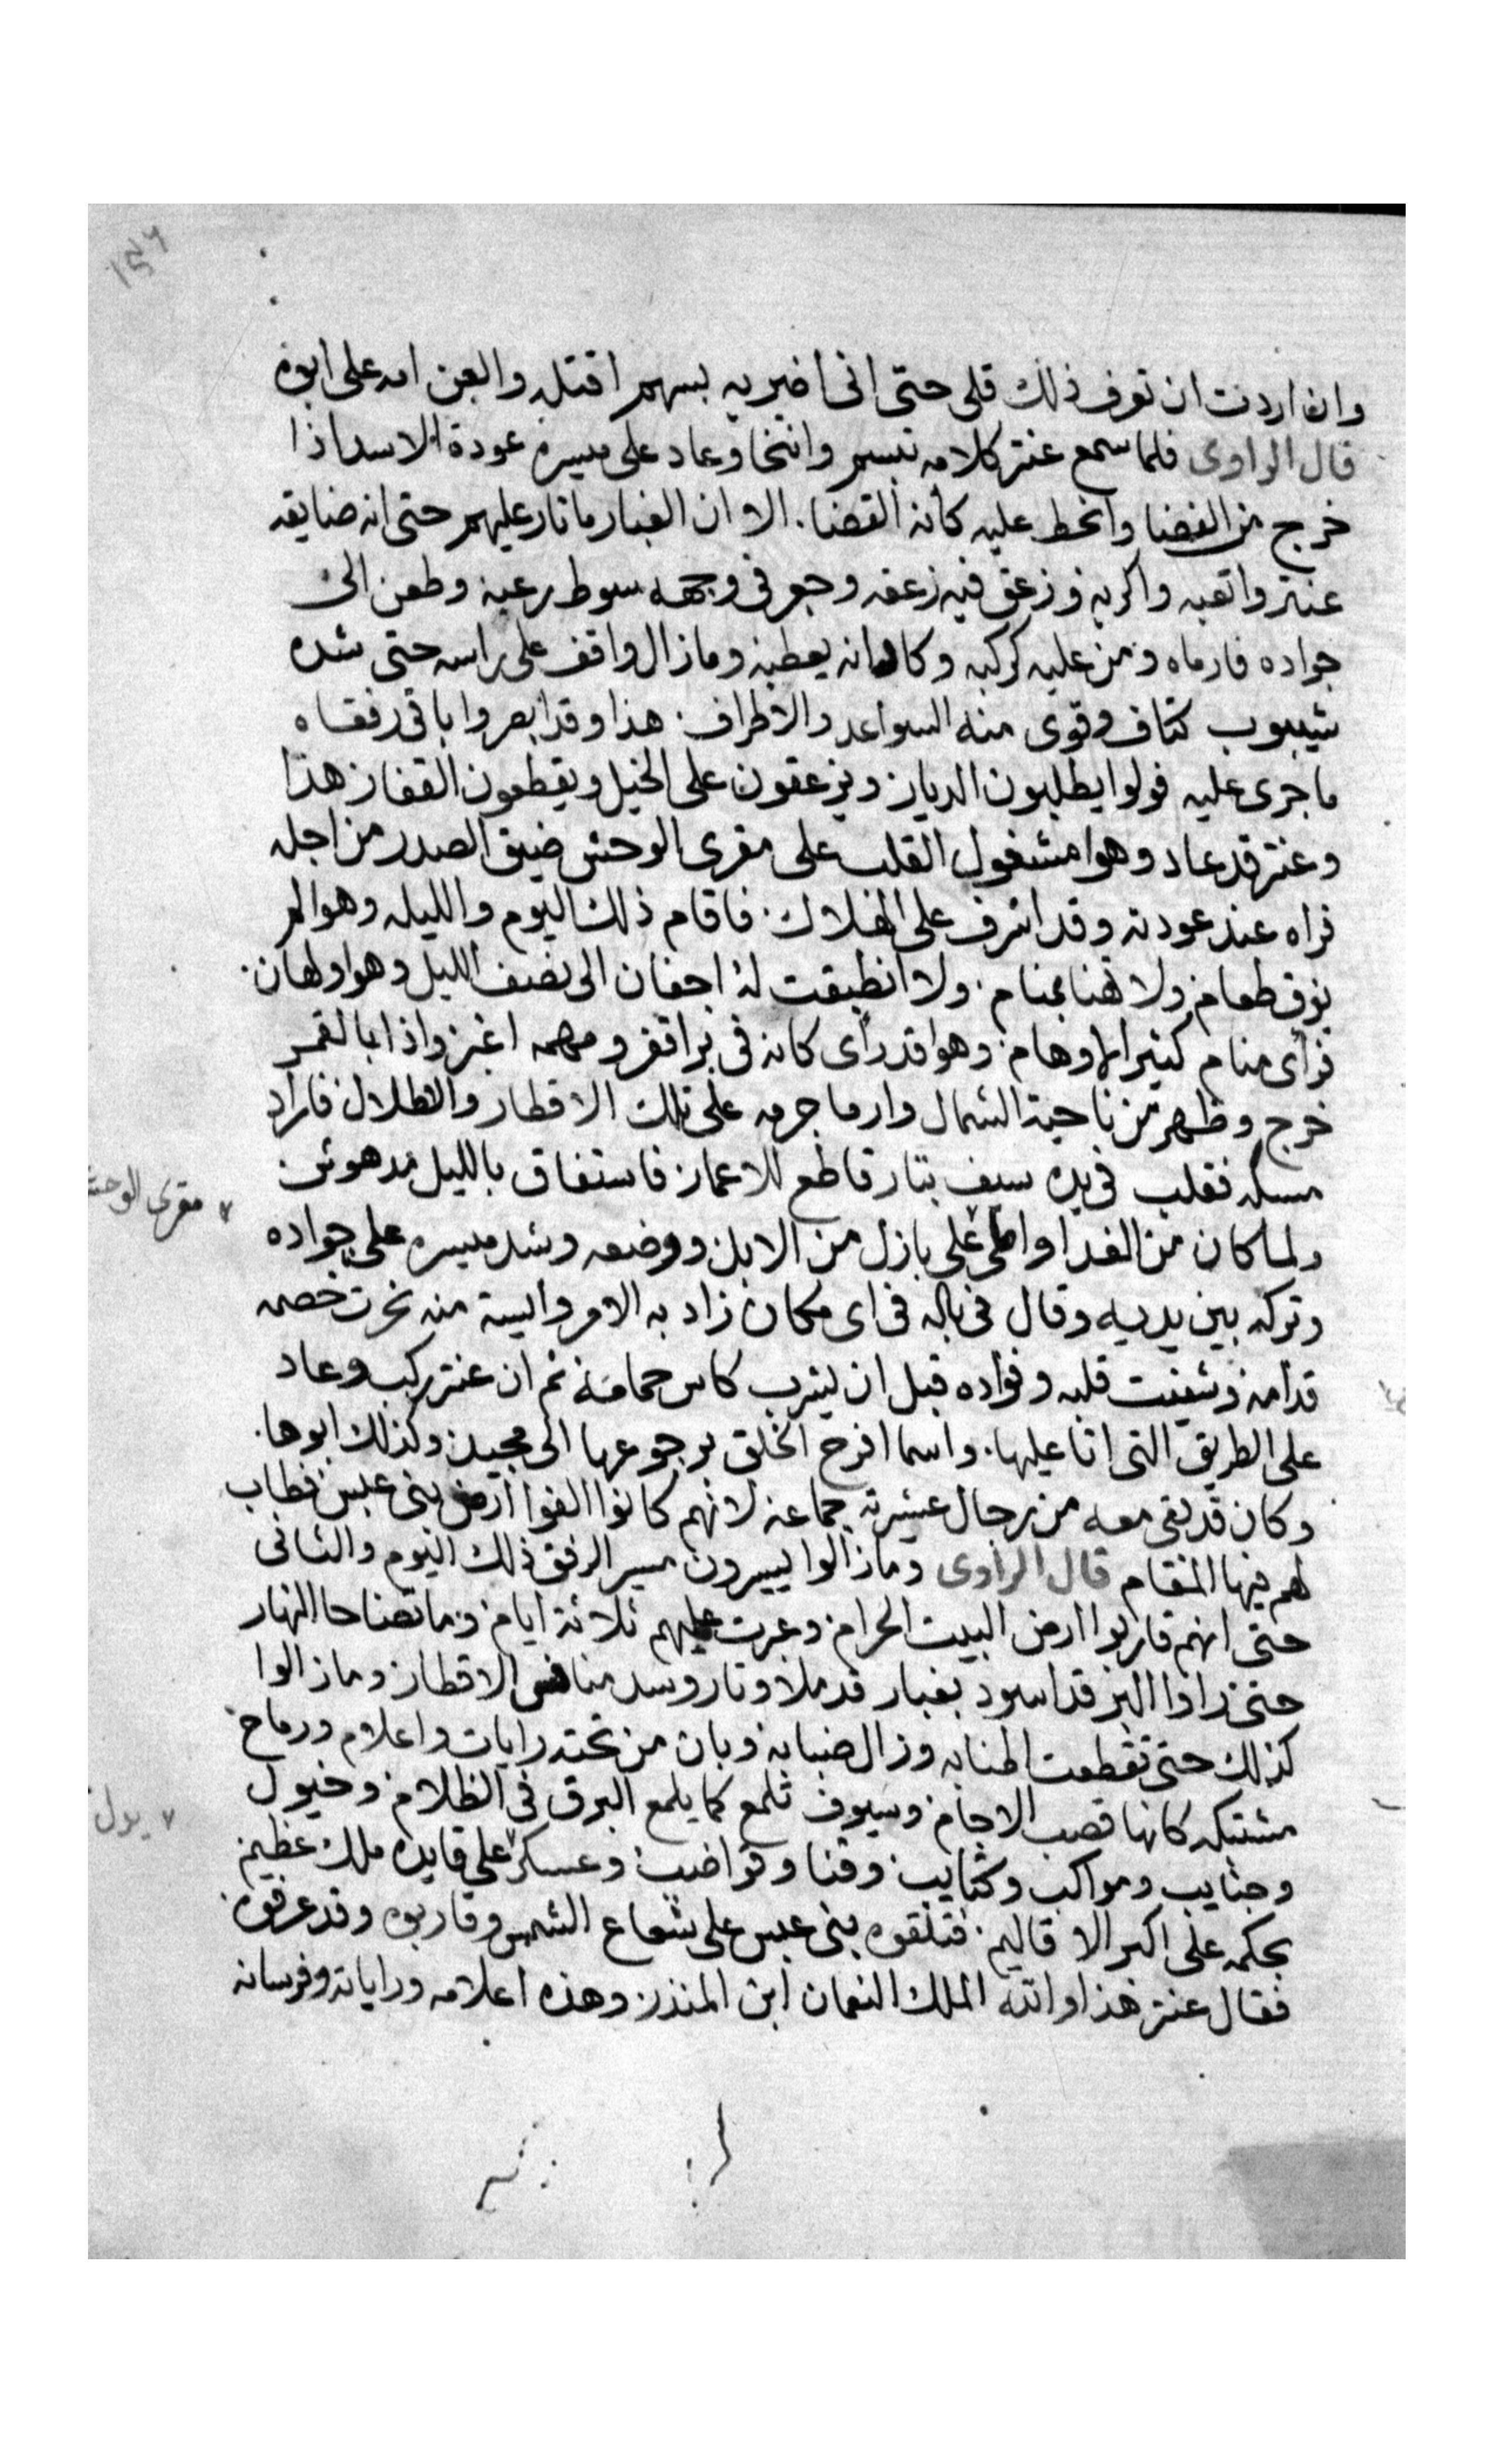 ١٥٦
وان اردت ان تعرف ذلك قلى حتى انى اضربه بسهم اقتله والعن امه على ابوه
قال الراوى فلما سمع عنتر كلامه تبسم وانتخا وعاد على ميسره عودة الاسد اذا
خرج من الفضا وانحط عليه كانه القضا. الا ان الغبار ما ثار عليهم حتى انه ضايقه
عنتر واتعبه واكربه وزعق فيه زعقه وجعر فى وجهه سوط رعبه وطعن الى
جواده فارماه ومن عليه كركبه وكاد انه يعطبه وما زال واقف على راسه حتى شده
شيبوب كتاف وقوى منه السواعد والاطراف. هذا وقد ابصروا باقى رفقاه
ما جرى عليه فولوا يطلبون الديار ويزعقون على الخيل ويقطعون القفار هذا
وعنتر قد عاد وهوا مشغول القلب على مقرى الوحش ضيق الصدر من اجله
فراه عند عودته وقد اشرف على الهلاك. فاقام ذلك اليوم والليله وهوا لم
يزق طعام ولا تهنا بمنام. ولا انطبقت له اجفان الى نصف الليل وهوا ولهان.
فرأى منام كثير الاوهام. وهوا قد رأى كانه فى بر اقفر ومهمه اغبر واذا بالقمر
خرج وظهر من ناحية الشمال وارما جرمه على تلك الاقطار والاطلال فاراد
مسكه فقلب فى يده سيف بتار قاطع للاعمار فاستفاق بالليل مدهوش
مقرى الوحش
ولما كان من الغدا واطى على بازل من الابل ووضعه وشد ميسره على جواده
وتركه بين يديه وقال فى باله فى اى مكان زاد به الامر وايست منه نحرت خصمه
قدامه وشفيت قلبه وفواده قبل ان يشرب كاس حمامه ثم ان عنتر ركب وعاد
على الطريق التى اتا عليها. واسما افرح الخلق برجوعها الى مجيد. وكذلك ابوها.
وكان قد بقى معه من رجال عشيرته جماعه لانهم كانوا الفوا ارض بنى عبس فطاب
لهم فيها المقام قال الراوى وما زالوا يسيرون مسير الرفق ذلك اليوم والثانى
حتى انهم قاربوا ارض البيت الحرام. وعبرت عليهم ثلاثة ايام. وما تضاحا النهار
حتى راوا البر قد اسود بغبار قد ملا وثار وسد منافس الاقطار. وما زالوا
كذلك حتى تقطعت اطنابه وزال ضبابه وبان من تحته رايات واعلام ورماح
مشتبكه كانها قصب الاجام. وسيوف تلمع كما يلمع البرق فى الظلام وخيول
وجنايب ومواكب وكتايب. وقنا وقواضب. وعسكر على قايده ملك عظيم
يدل
بحكمه على اكبر الاقاليم. فتلقوه بنى عبس على شعاع الشمس وقاربوه وقد عرفوه.
فقال عنتر هذا والله الملك النعمان ابن المنذر. وهذه اعلامه وراياته وفرسانه